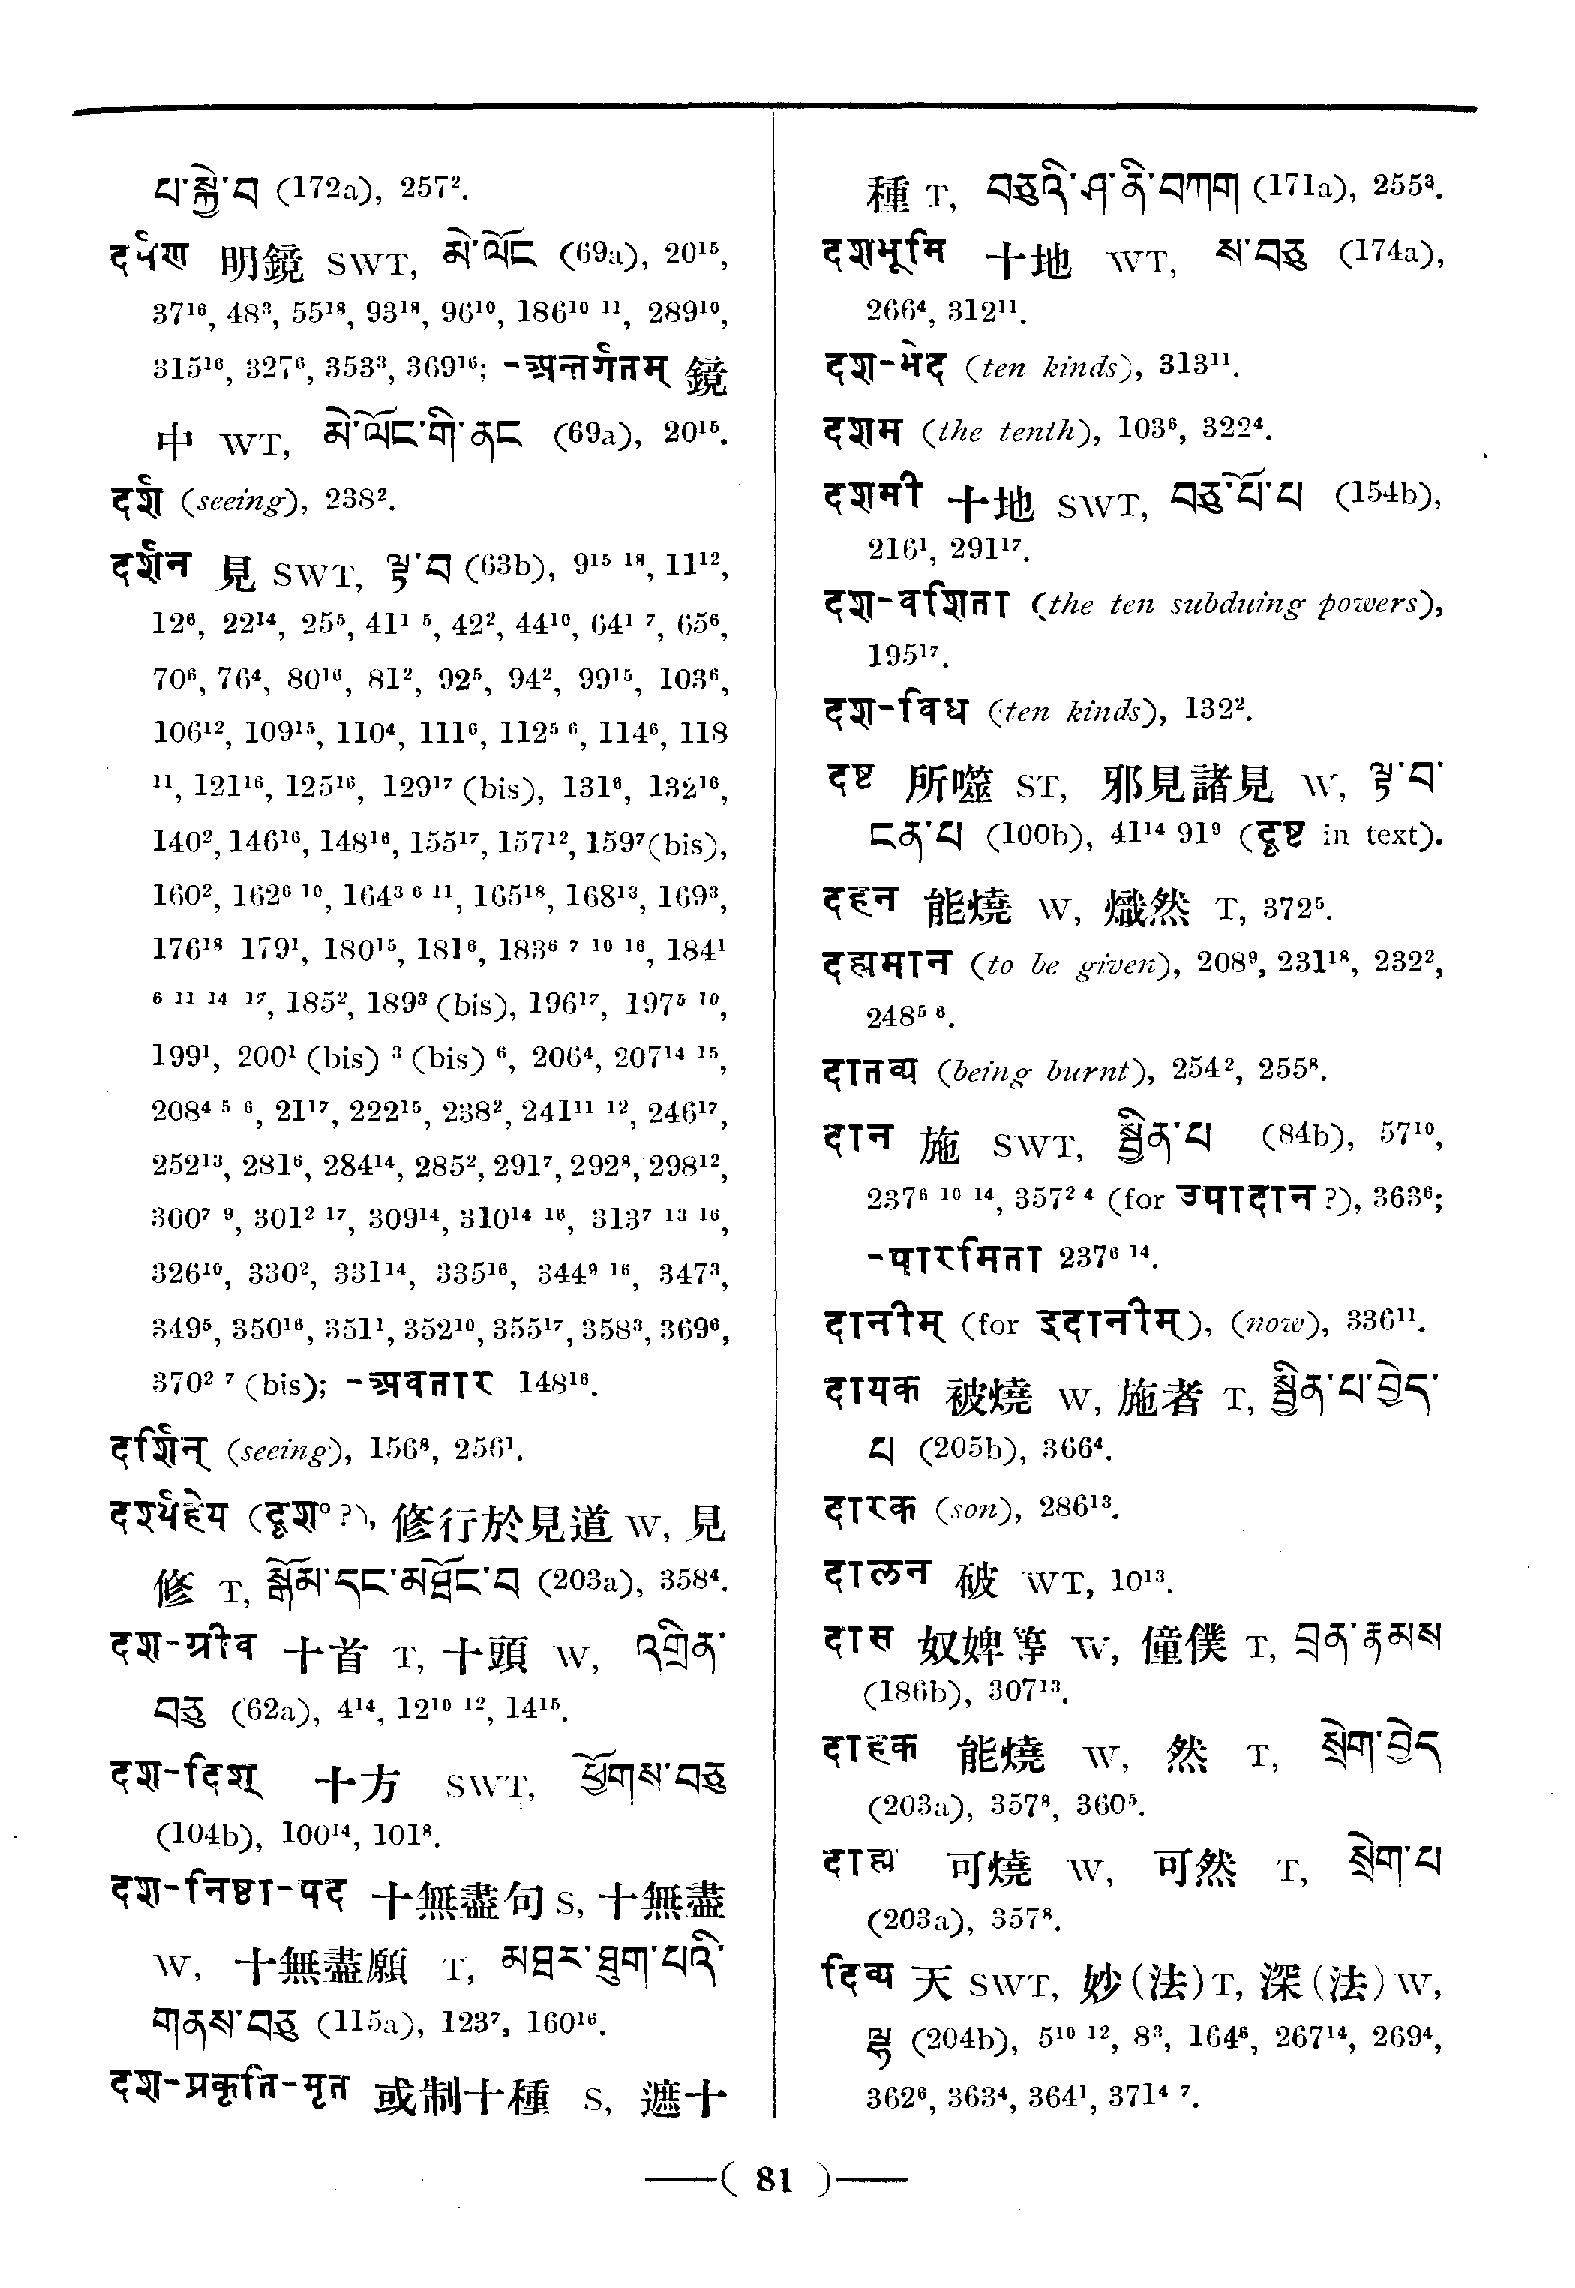 པ་སྐྱེ་བ (172a), 257².
दर्पण 明鏡 SWT, མེ་ལོང (69a), 20¹⁵,
37¹⁶, 48³, 55¹⁸, 93¹⁸, 96¹⁰, 186¹⁰ ¹¹, 289¹⁰,
315¹⁶, 327⁶, 353³, 369¹⁶; -अन्तर्गतम् 鏡
中 WT, མེ་ལོང་གི་ནང (69a), 20¹⁵.
दर्श (seeing), 238².
दर्शन 見 SWT, ལྟ་བ (63b), 9¹⁵ ¹⁸, 11¹²,
12⁶, 22¹⁴, 25⁵, 41¹ ⁵, 42², 44¹⁰, 64¹ ⁷, 65⁶,
70⁶, 76⁴, 80¹⁶, 81², 92⁵, 94², 99¹⁵, 103⁶,
106¹², 109¹⁵, 110⁴, 111⁶, 112⁵ ⁶, 114⁶, 118
¹¹, 121¹⁶, 125¹⁶, 129¹⁷ (bis), 131⁶, 132¹⁶,
140², 146¹⁶, 148¹⁶, 155¹⁷, 157¹², 159⁷(bis),
160², 162⁶ ¹⁰, 164³ ⁶ ¹¹, 165¹⁸, 168¹³, 169³,
176¹⁸ 179¹, 180¹⁵, 181⁶, 183⁶ ⁷ ¹⁰ ¹⁶, 184¹
⁶ ¹¹ ¹⁴ ¹⁷, 185², 189³ (bis), 196¹⁷, 197⁵ ¹⁰,
199¹, 200¹ (bis) ³ (bis) ⁶, 206⁴, 207¹⁴ ¹⁵,
208⁴ ⁵ ⁶, 21¹⁷, 222¹⁵, 238², 241¹¹ ¹², 246¹⁷,
252¹³, 281⁶, 284¹⁴, 285², 291⁷, 292⁸, 298¹²,
300⁷ ⁹, 301² ¹⁷, 309¹⁴, 310¹⁴ ¹⁶, 313⁷ ¹³ ¹⁶,
326¹⁰, 330², 331¹⁴, 335¹⁶, 344⁹ ¹⁶, 347³,
349⁵, 350¹⁶, 351¹, 352¹⁰, 355¹⁷, 358³, 369⁶,
370² ⁷ (bis); -अवतार 148¹⁶.
दर्शिन् (seeing), 156⁸, 256¹.
दर्श्यहेय (दृश° ?), 修行於見道 W, 見
修 T, སྒོམ་དང་མཐོང་བ (203a), 358⁴.
दश-ग्रीव 十首 T, 十頭 W, འགྲིན་
བཅུ (62a), 4¹⁴, 12¹⁰ ¹², 14¹⁵.
दश-दिश् 十方 SWT, ཕྱོགས་བཅུ
(104b), 100¹⁴, 101⁸.
दश-निष्ठा-पद 十無盡句 S, 十無盡
W, 十無盡願 T, མཐར་ཐུག་པའི་
གནས་བཅུ (115a), 123⁷, 160¹⁶.
दश-प्रकृति-मृत 或制十種 S, 遮十
種 T, བཅུའི་ཤ་ནི་བཀག (171a), 255³.
दशभूमि 十地 WT, ས་བཅུ (174a),
266⁴, 312¹¹.
दश-भेद (ten kinds), 313¹¹.
दशम (the tenth), 103⁶, 322⁴.
दशमी 十地 SWT, བཅུ་པོ་པ (154b),
216¹, 291¹⁷.
दश-वशिता (the ten subduing powers),
195¹⁷.
दश-विध (ten kinds), 132².
दष्ट 所噬 ST, 邪見諸見 W, ལྟ་བ་
ངན་པ (100b), 41¹⁴ 91⁹ (दृष्ट in text).
दहन 能燒 W, 熾然 T, 372⁵.
दह्यमान (to be given), 208⁹, 231¹⁸, 232²,
248⁵ ⁶.
दातव्य (being burnt), 254², 255⁸.
दान 施 SWT, སྦྱིན་པ (84b), 57¹⁰,
237⁶ ¹⁰ ¹⁴, 357² ⁴ (for उपादान ?), 363⁶;
-पारमिता 237⁶ ¹⁴.
दानीम् (for इदानीम्), (now), 336¹¹.
दायक 被燒 W, 施者 T, སྦྱིན་པ་བྱེད་
པ (205b), 366⁴.
दारक (son), 286¹³.
दालन 破 WT, 10¹³.
दास 奴婢等 W, 僮僕 T, བྲན་རྣམས
(186b), 307¹³.
दाहक 能燒 W, 然 T, སྲེག་བྱེད
(203a), 357⁸, 360⁵.
दाह्य 可燒 W, 可然 T, སྲེག་པ
(203a), 357⁸.
दिव्य 天 SWT, 妙(法)T, 深(法)W,
ལྷ (204b), 5¹⁰ ¹², 8³, 164⁶, 267¹⁴, 269⁴,
362⁶, 363⁴, 364¹, 371⁴ ⁷.
( 81 )